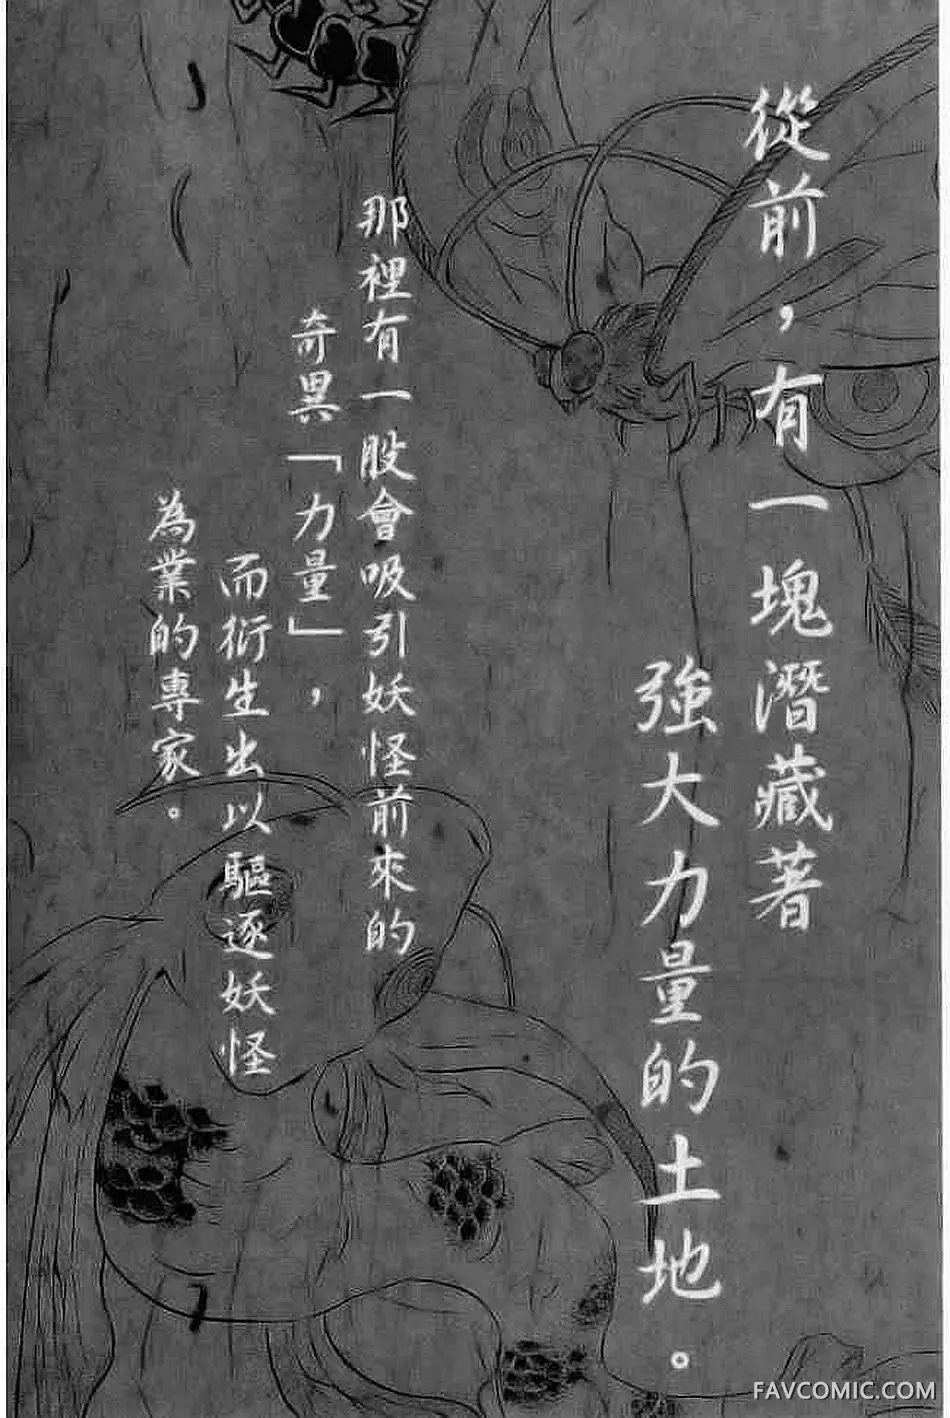 從前，有一塊潛藏著
強大力量的土地。
那裡有一股會吸引妖怪前來的
奇異「力量」，
而衍生出以驅逐妖怪
為業的專家。
FAVCOMIC.COM